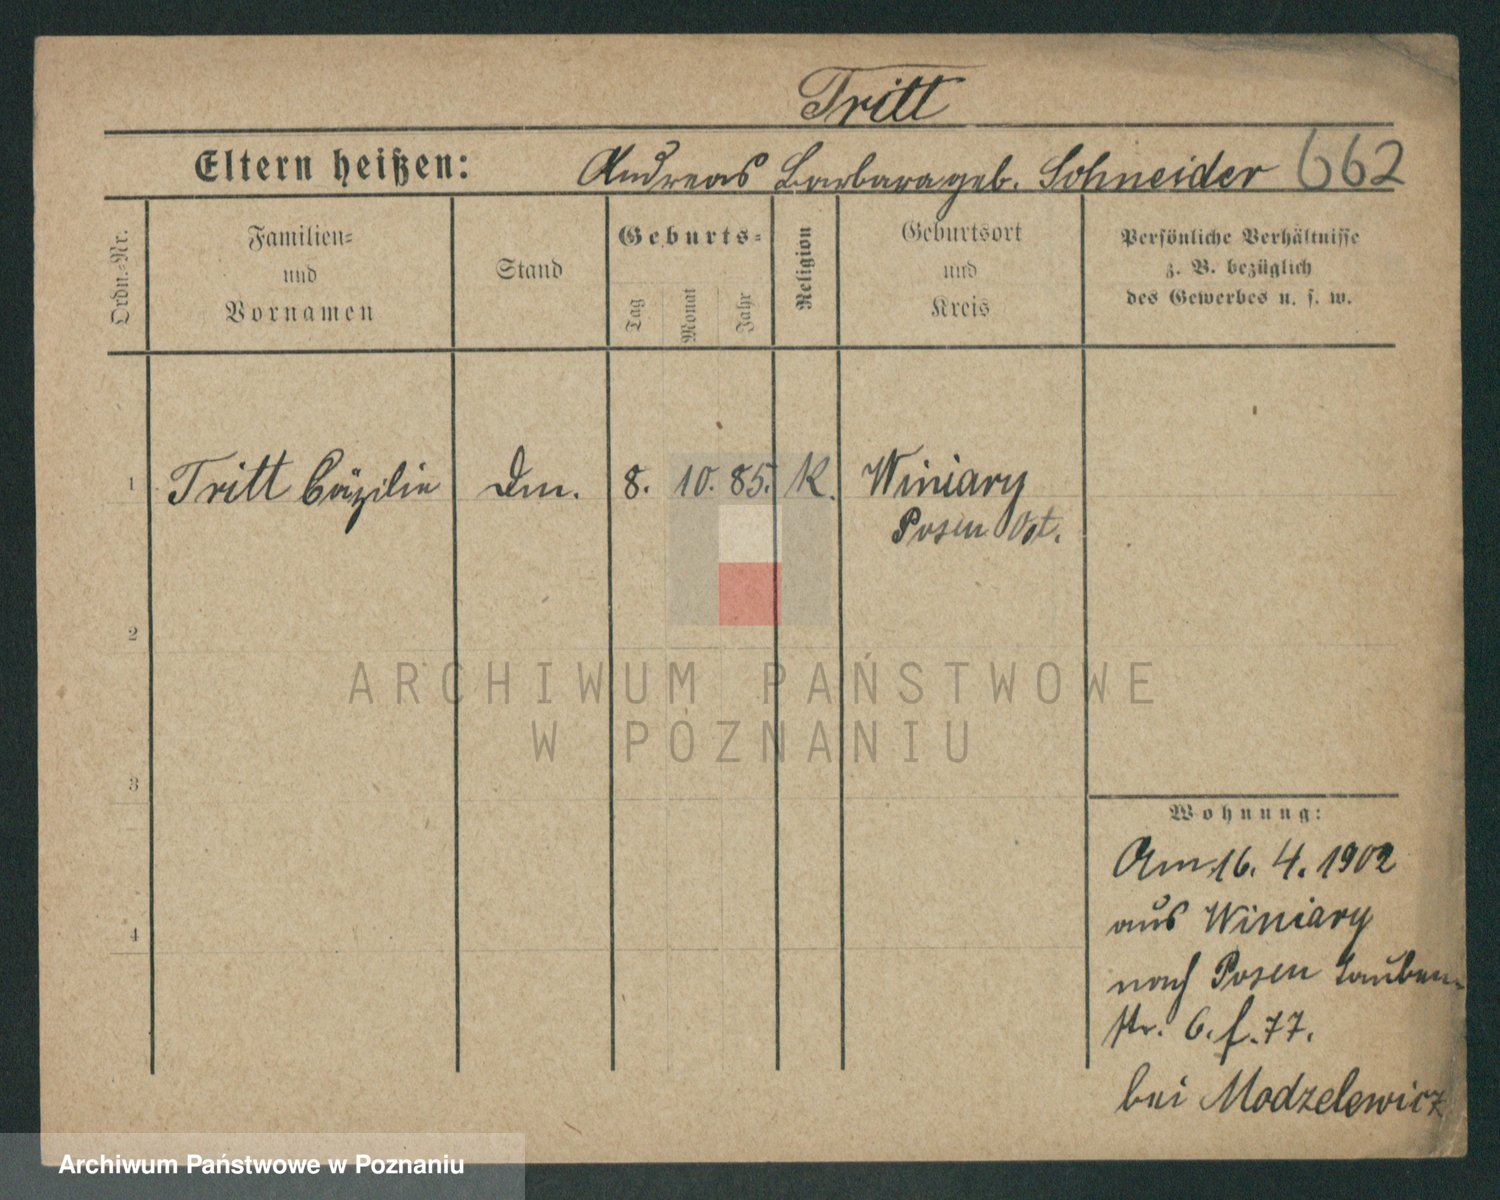 Tritt
Eltern heißen: Andreas Barbara geb. Schneider 662
Ordn.-Nr.
Familien-
und
Vornamen
Stand
Geburts-
Tag
Monat
Jahr
Religion
Geburtsort
und
Kreis
Persönliche Verhältnisse
z. B. bezüglich
des Gewerbes u. s. w.
1 Tritt Cäzilie Dm. 8. 10. 85. K. Winiary
Posen Ost.
2
3
4
Wohnung:
Am 16. 4. 1902
aus Winiary
nach Posen Lauben-
str. 6. f. 77.
bei Modzelewicz
ARCHIWUM PAŃSTWOWE
W POZNANIU
Archiwum Państwowe w Poznaniu